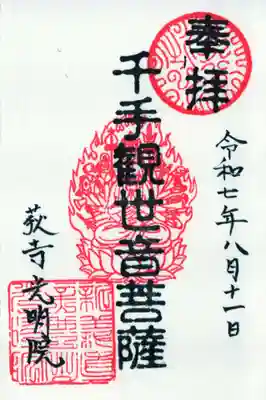 奉拝
令和七年八月十一日
千手観世音菩薩
荻寺光明院